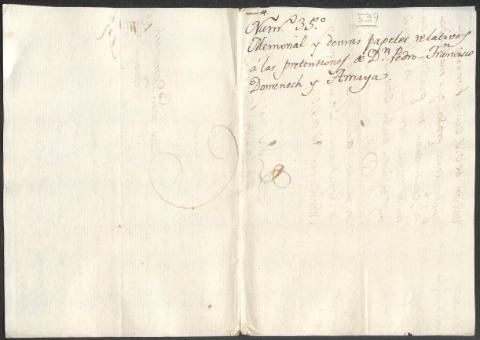 539
Num.º 35.º
Memorial y demas papeles relativos
á las pretensiones de D.n Pedro Fran.cisco
Domenech y Amaya.